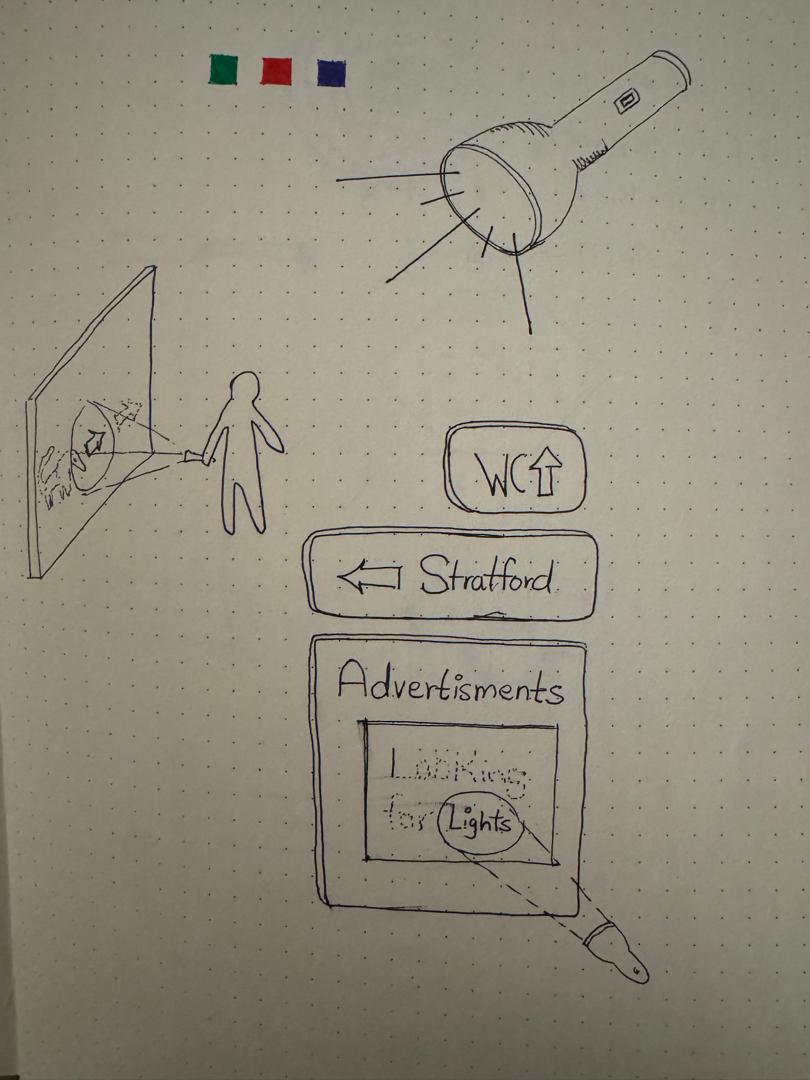 WC
Stratford
Advertisments
Looking
for Lights